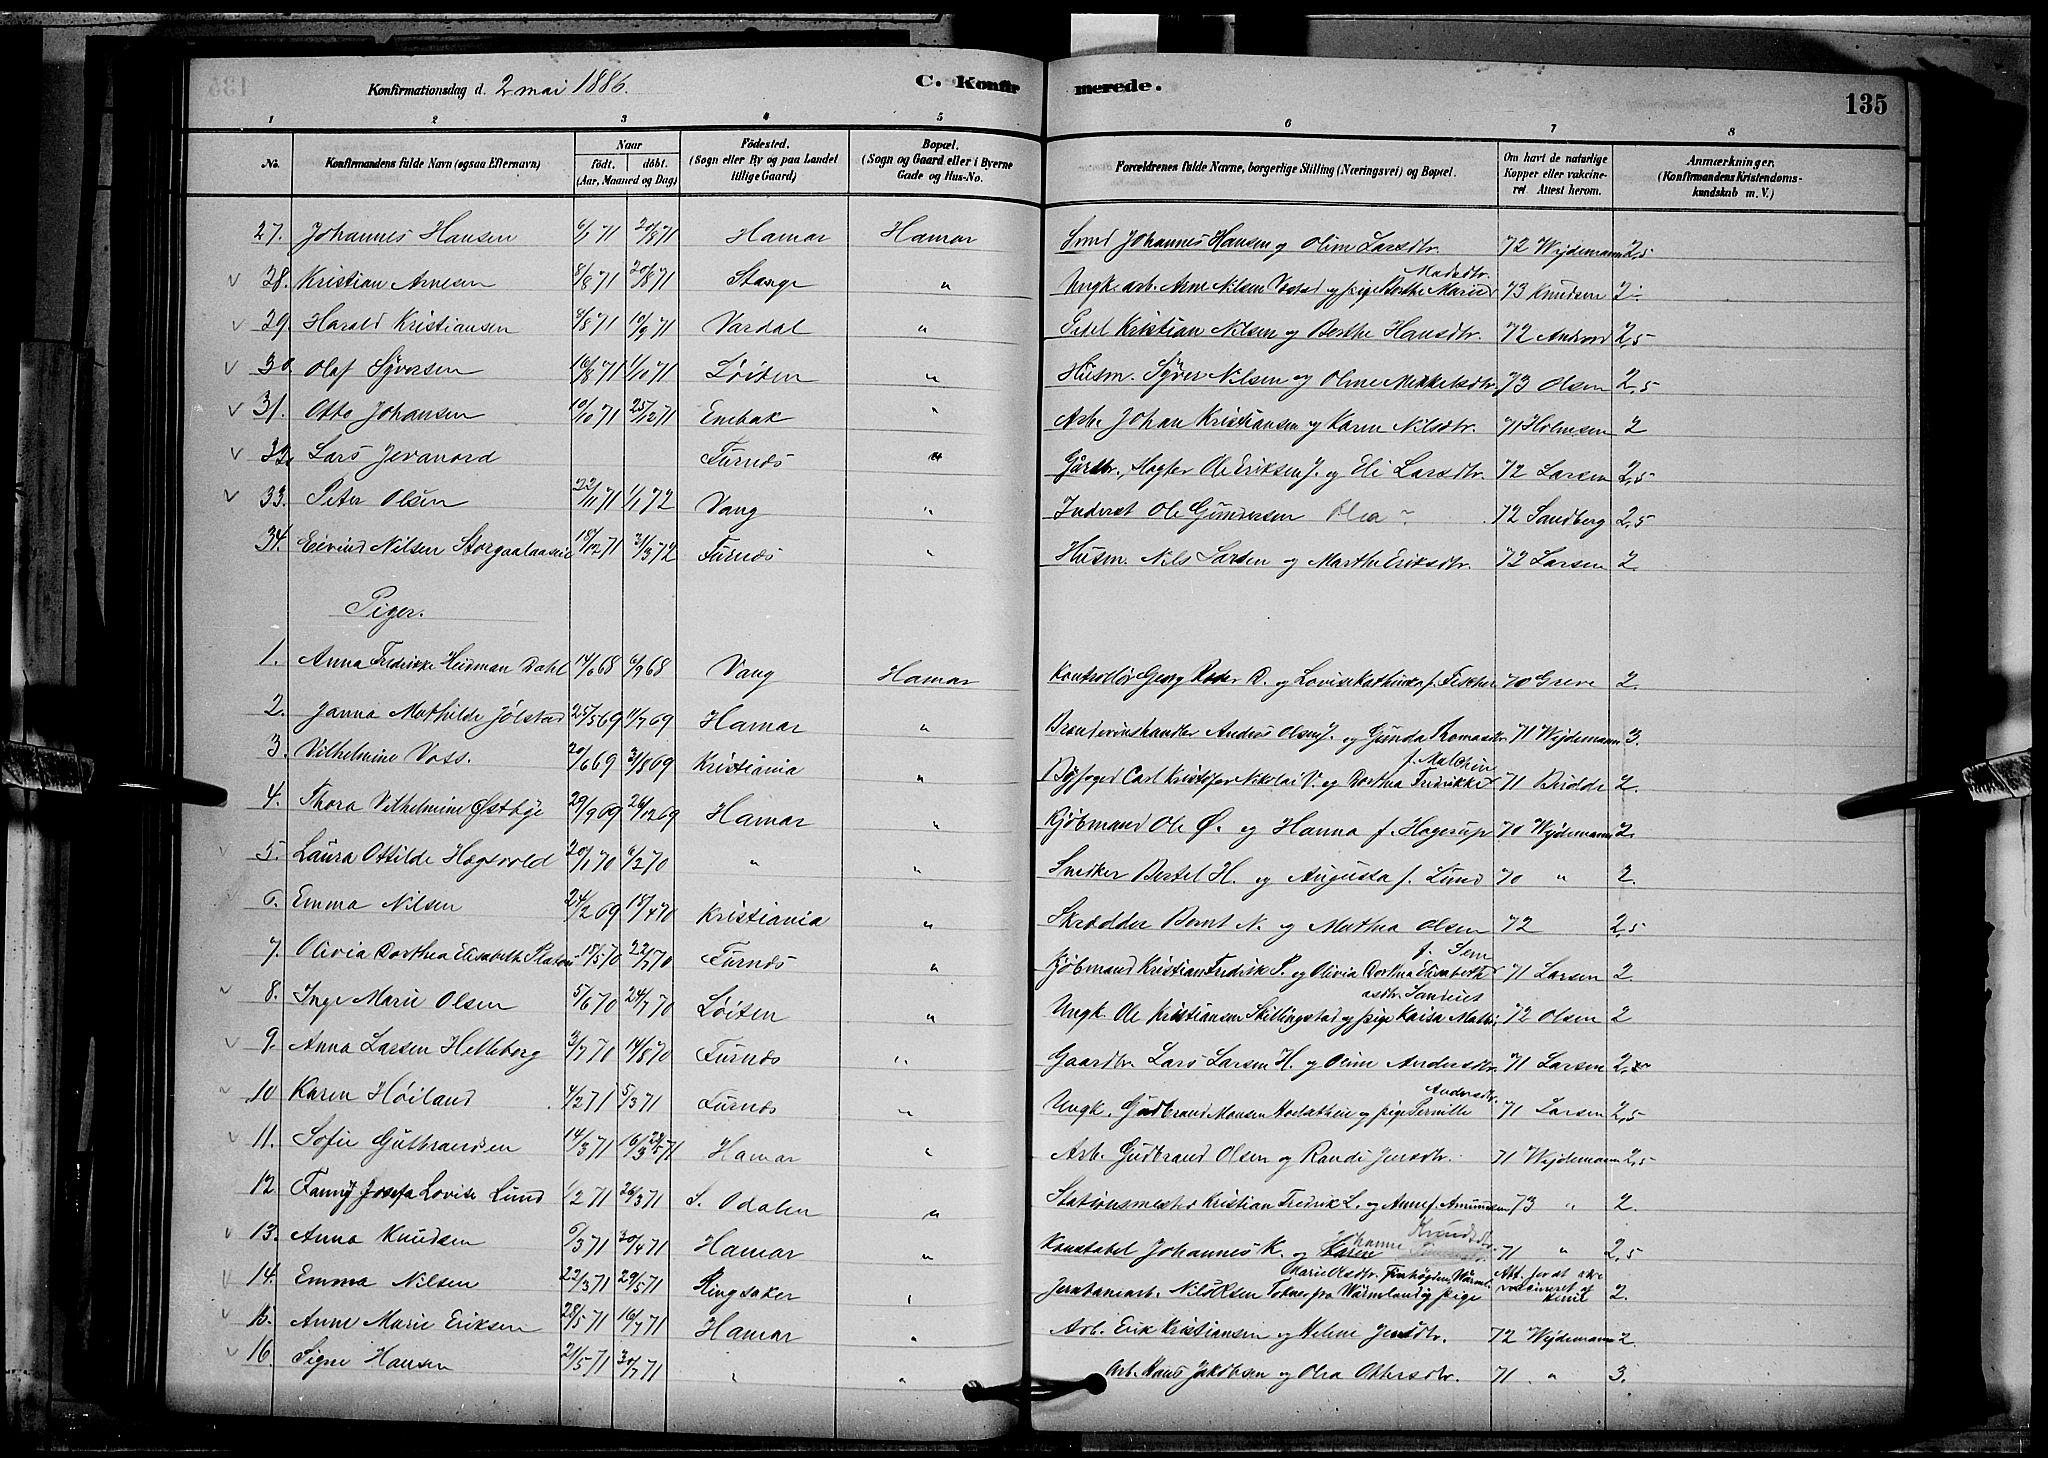 Konfirmationsdag d. 2 mai 1886.
C. Konfirmerede.
135
1 2 3 4 5 6 7 8
No. Konfirmandens fulde Navn (ogsaa Efternavn) Naar født. døbt. (Aar, Maaned og Dag) Fødested. (Sogn eller By og paa Landet tillige Gaard) Bopæl. (Sogn og Gaard eller i Byerne Gade og Hus-No. Forældrenes fulde Navne, borgerlige Stilling (Næringsvei) og Bopæl. Om havt de naturlige Kopper eller vakcineret. Attest herom. Anmærkninger. (Konfirmandens Kristendomskundskab m. V.)
27. Johannes Hansen 6/1 71 20/3 71 Hamar Hamar Smed Johannes Hansen og Oline Larsdtr. 72 Wejdemann 2,5
28. Kristian Arnesen 8/8 71 20/8 71 Stange " Ungk. arb. Arne Nilsen og pige Berthe Marie Madsdtr. 73 Knudsen 2
29. Harald Kristiansen 4/8 71 10/9 71 Vardal " Pedel Kristian Nilsen og Berthe Hansdtr. 72 2,5
30 Olaf Syversen 16/8 71 1/10 71 Løiten " Husm. Syver Nilsen og Oline Mikkelsdtr. 73 Olsen 2,5
31. Otto Johansen 10/10 71 25/12 71 Enebak " Arb. Johan Kristiansen og Karen Nilsdtr. 71 Holmsen 2
32. Lars Jevanord Furnæs " Gårdbr. Ole Eriksen J. og Eli Larsdtr. 72 Larsen 2,5
33. Peter Olsen 22/11 71 1/1 72 Vang " Inderst Ole Gundersen Olea 72 Sandberg 2,5
34. Eivind Nilsen 18/12 71 31/3 72 Furnæs " Husm. Nils Larsen og Marthe Eriksdtr. 72 Larsen 2.
Piger.
1. Anna Fredrikke Heidman Dahl 14/6 68 6/9 68 Vang Hamar Kontrollør Georg D. og Lovise Kathinka f. Fischer 70 Greve 2.
2. Janna Mathilde Jølstad 25/5 69 11/7 69 Hamar " Brændevinshandler Anders Olsen J. og Gunda Thomasdtr 71 Wejdemann 3.
3. Vilhelmine Voss. 20/6 69 3/8 69 Kristiania " Byfoged Carl Kristofer Nikolai V. og Dorthea Fredrikke f. Malthin 71 2.
4. Thora Vilhelmine Østbye 29/9 69 26/12 69 Hamar " Kjøbmand Ole Ø. og Hanna f. Hagerup 70 Wejdemann 2.
5. Laura Ottilde Hægsvold 20/1 70 6/2 70 " " Snedker Bertel H. og Augusta f. Lund 70 " 2.
6. Emma Nilsen 24/2 69 18/4 70 Kristiania " Skrædder Bernt N. og Mathea Olsen 72 2,5
7. Olivia Dorthea Elisabeth Platou 18/5 70 22/7 70 Furnæs " Kjøbmand Kristian Fredrik P. og Olivia Dorthea Elisabeth f. Sem 71 Larsen 2
8. Inge Marie Olsen 5/6 70 24/7 70 Løiten " Ungk. Ole Kristiansen Skillingstad og pige Kaisa 72 Olsen 2
9. Anna Larsen Helleborg 3/7 70 14/8 70 Furnæs " Gaardbr. Lars Larsen H. og Oline Andersdtr. 71 Larsen
10 Karen Høiland 4/2 71 5/3 71 Furnæs " Ungk. Gudbrand Monsen og pige Pernille Andersdtr. 71 Larsen 2,5
11. Sofie Gutbrandsen 14/3 71 Hamar " Arb. Gudbrand Olsen og Randi Jensdtr. 71 Wejdemann 2,5
12 Fanny Josefa Lovise Lund 1/2 71 26/3 71 S. Odalen " Stationsmester Kristian Fredrik L. og Anne f. Amundsen 73 " 2.
13. Anna Knudsen 6/3 71 30/4 71 Hamar " Konstabel Johannes K. og Karen 71 " 2,5
14. Emma Nilsen 22/3 71 29/5 71 Ringsaker " Jernbanearb. Nils Olsen fra Wärmland og pige Marie Olsdtr. 2.
15. Anne Marie Eriksen 28/5 71 16/7 71 Hamar " Arb. Erik Kristiansen og Helene Jensdtr. 72 Wejdemann 2
16. Signe Hansen 21/5 71 30/7 71 " " Arb. Hans Jakobsen og Olea Ottersdtr. 71 " 3.